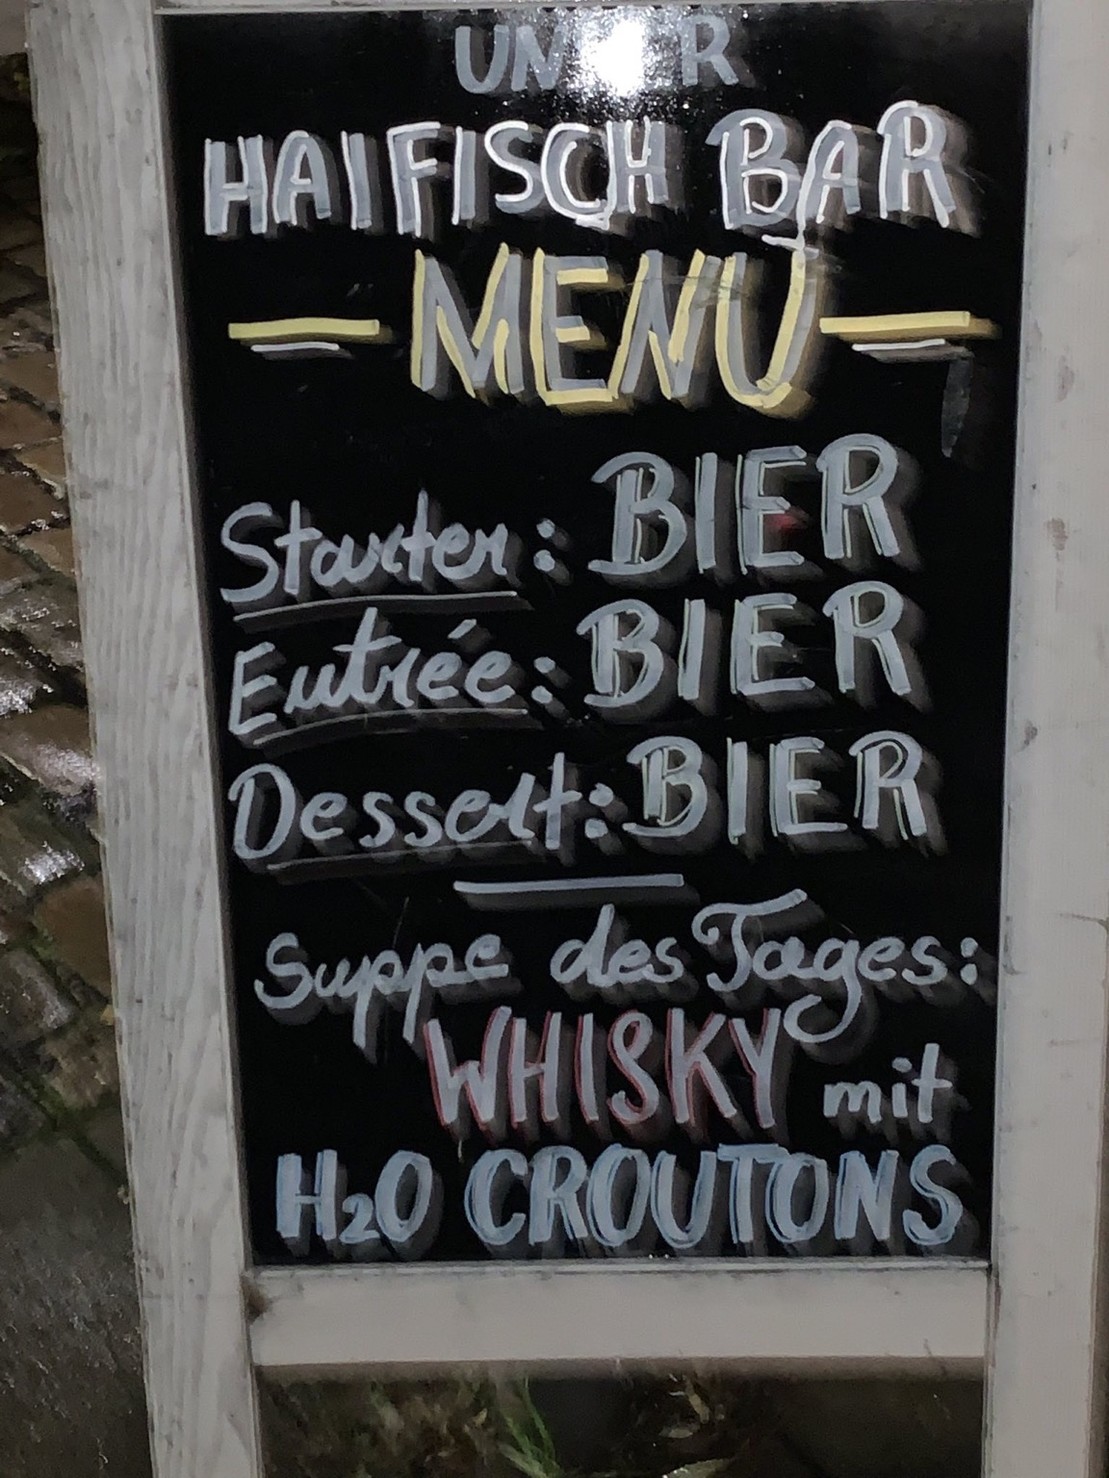 HAIFISCH BAR
MENU
Starter: BIER
Entrée: BIER
Dessert: BIER
Suppe des Tages:
WHISKY mit
H₂O CROUTONS